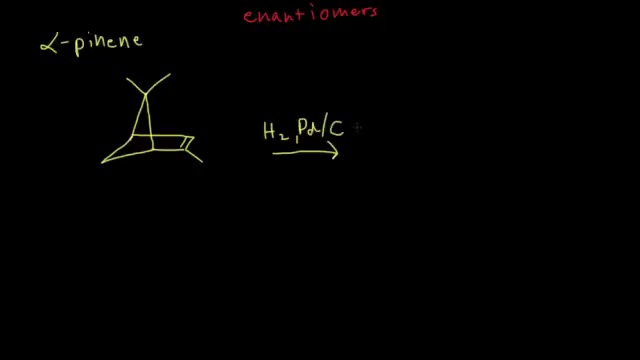 enantiomers
α-pinene
H₂, Pd/C